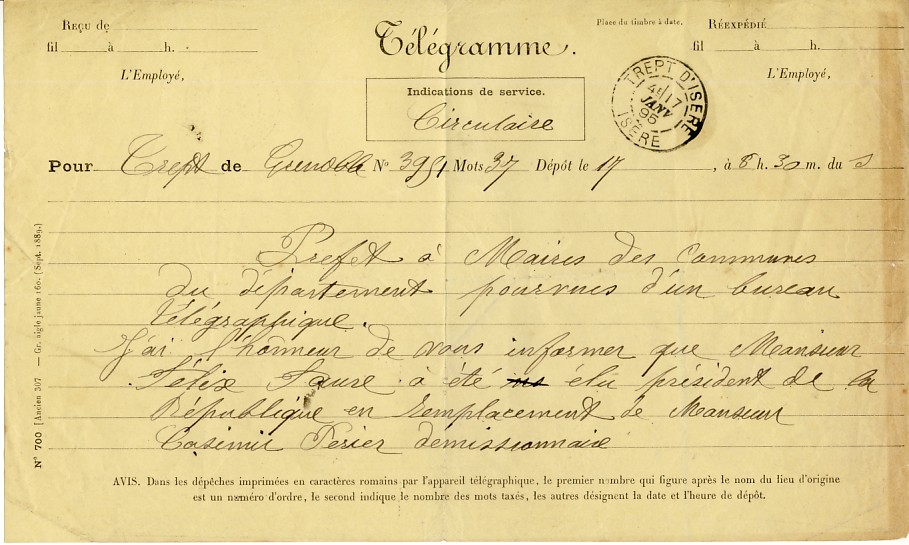 Reçu de
fil à h.
L'Employé,
Télégramme.
Indications de service.
Circulaire
Place du timbre à date.
TREPT D'ISERE
17
JANV
95
ISERE
Réexpédié
fil à h.
L'Employé,
Pour Trept de Grenoble N° Mots 37 Dépôt le 17, à 8 h. 30 m. du s
Prefet à Maires des Communes
du département pourvues d'un bureau
télégraphique.
J'ai l'honneur de vous informer que Monsieur
Félix Faure à été élu président de la
République en remplacement de Monsieur
Casimir Perier demissionnaire
N° 700 [Ancien 307 — Gr. aigle jaune 160. (Sept. 1889.)
AVIS. Dans les dépêches imprimées en caractères romains par l'appareil télégraphique, le premier nombre qui figure après le nom du lieu d'origine
est un numéro d'ordre, le second indique le nombre des mots taxés, les autres désignent la date et l'heure de dépôt.